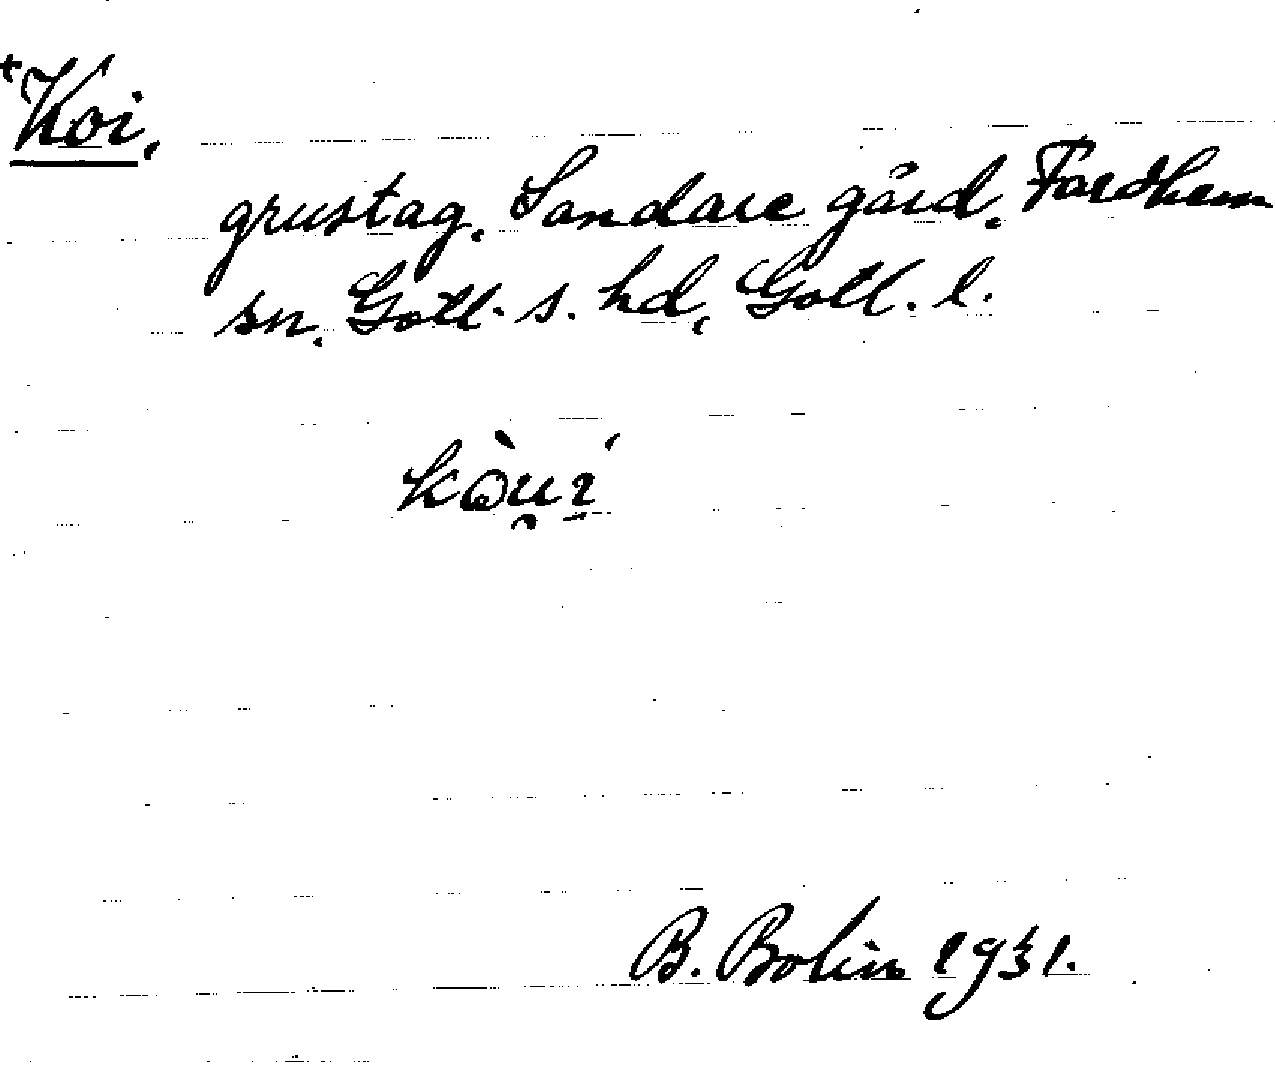 +Koi,
grustag, Sandare gård, Fardhem
sn, Gotl. s. hd, Gotl. l.
kòu̯í
B. Bolin 1931.